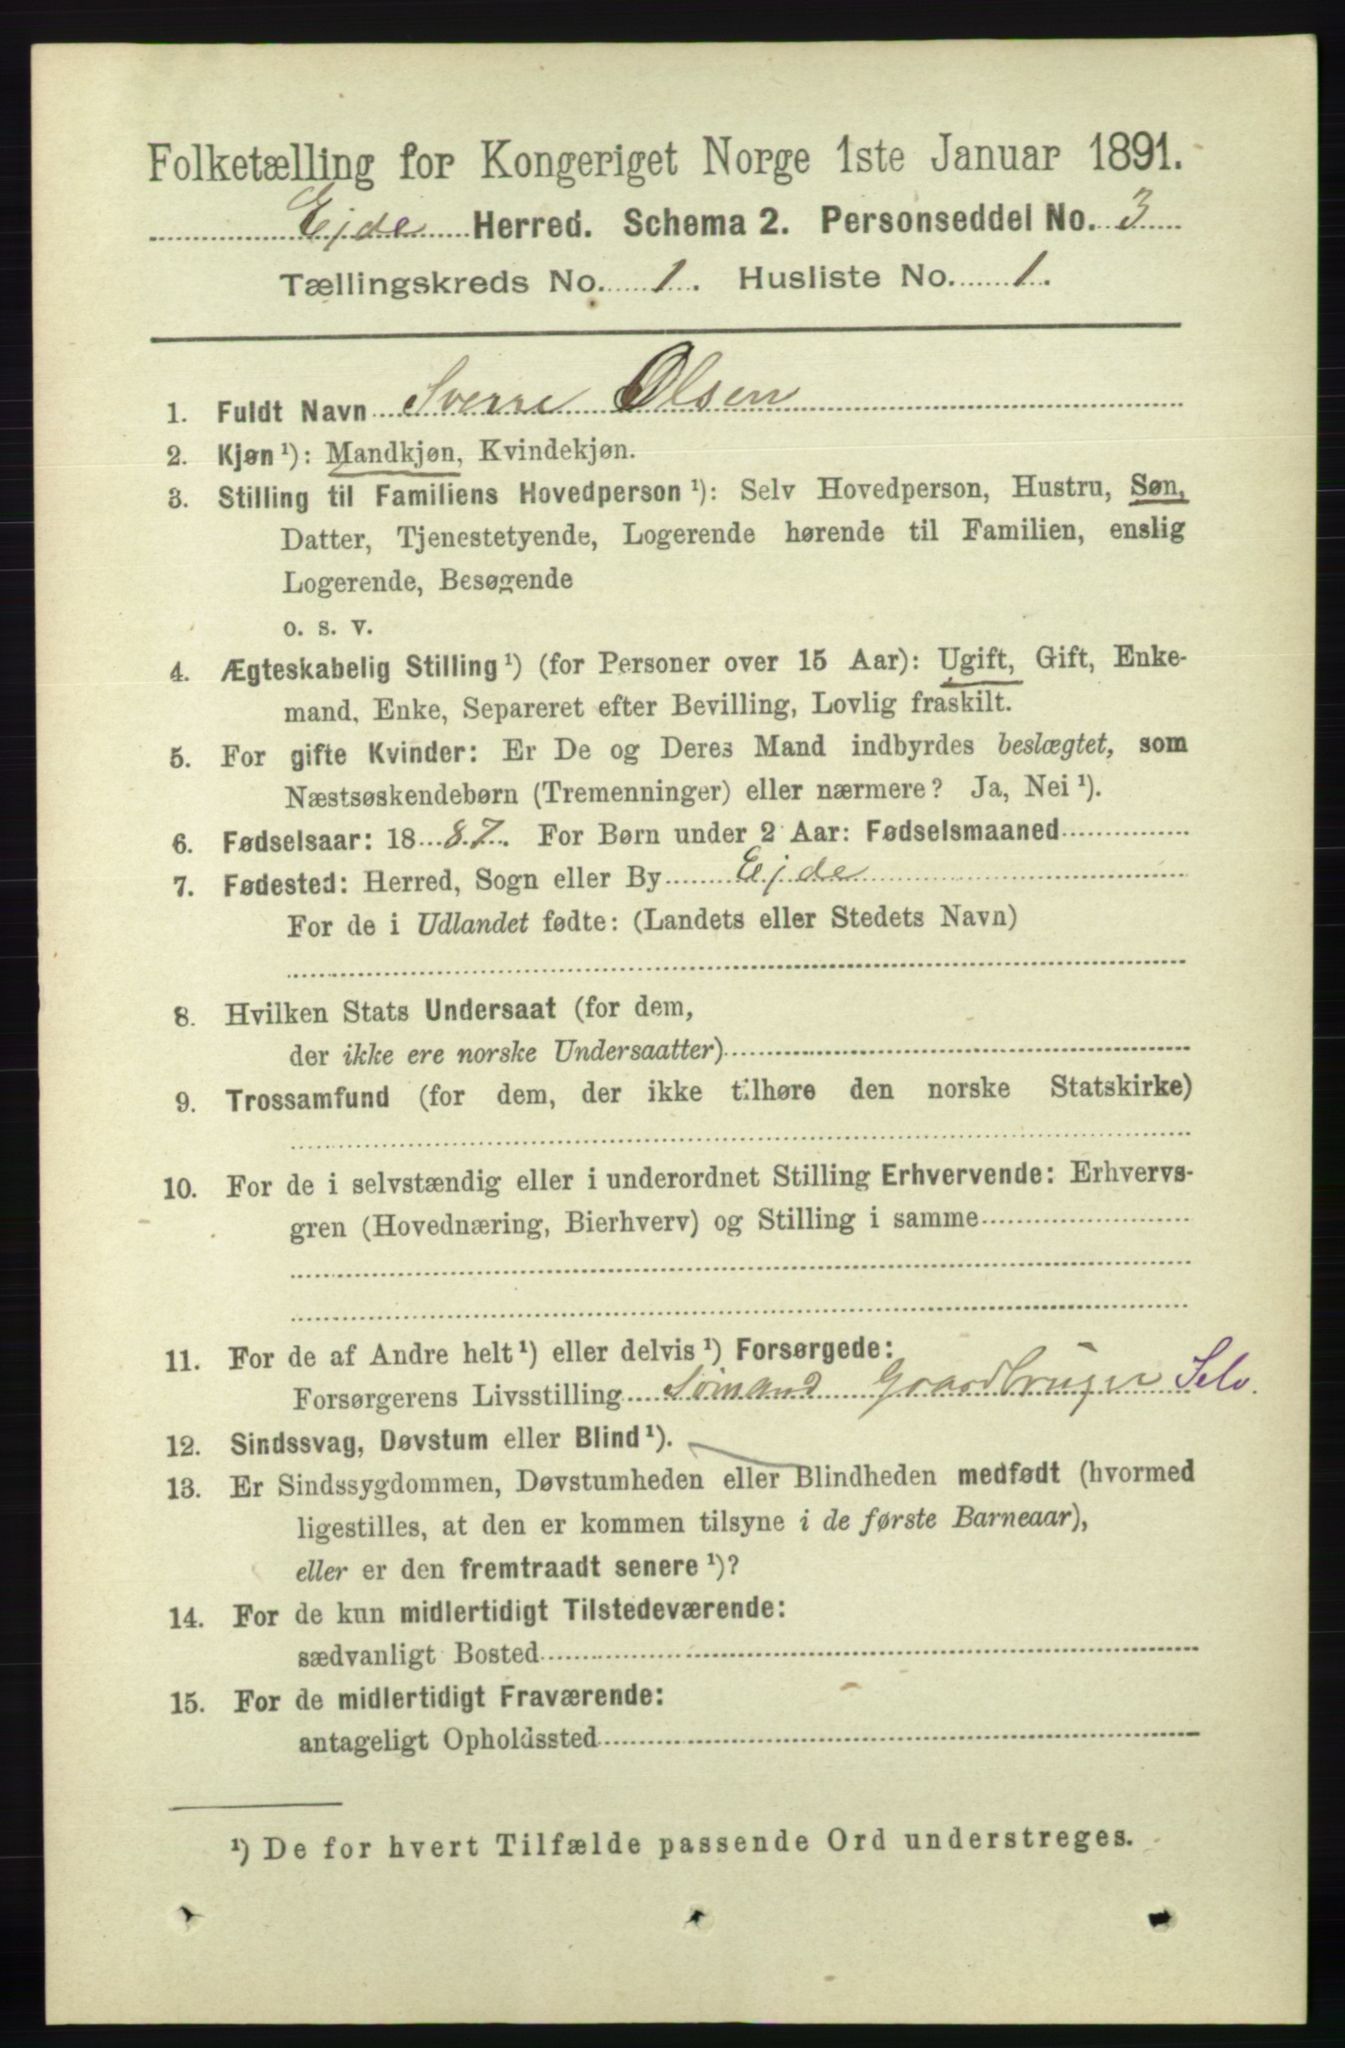 Folketælling for Kongeriget Norge 1ste Januar 1891.
Ejde Herred. Schema 2. Personseddel No. 3
Tællingskreds No. 1. Husliste No. 1.
1. Fuldt Navn Sverre Olsen
2. Kjøn ¹): Mandkjøn, Kvindekjøn.
3. Stilling til Familiens Hovedperson ¹): Selv Hovedperson, Hustru, Søn,
Datter, Tjenestetyende, Logerende hørende til Familien, enslig
Logerende, Besøgende
o. s. v.
4. Ægteskabelig Stilling ¹) (for Personer over 15 Aar): Ugift, Gift, Enke-
mand, Enke, Separeret efter Bevilling, Lovlig fraskilt.
5. For gifte Kvinder: Er De og Deres Mand indbyrdes beslægtet, som
Næstsøskendebørn (Tremenninger) eller nærmere? Ja, Nei ¹).
6. Fødselsaar: 1887. For Børn under 2 Aar: Fødselsmaaned
7. Fødested: Herred, Sogn eller By Ejde
For de i Udlandet fødte: (Landets eller Stedets Navn)
8. Hvilken Stats Undersaat (for dem,
der ikke ere norske Undersaatter)
9. Trossamfund (for dem, der ikke tilhøre den norske Statskirke)
10. For de i selvstændig eller i underordnet Stilling Erhvervende: Erhvervs-
gren (Hovednæring, Bierhverv) og Stilling i samme
11. For de af Andre helt ¹) eller delvis ¹) Forsørgede:
Forsørgerens Livsstilling Sømand Gaardbruger Selv.
12. Sindssvag, Døvstum eller Blind ¹).
13. Er Sindssygdommen, Døvstumheden eller Blindheden medfødt (hvormed
ligestilles, at den er kommen tilsyne i de første Barneaar),
eller er den fremtraadt senere ¹)?
14. For de kun midlertidigt Tilstedeværende:
sædvanligt Bosted
15. For de midlertidigt Fraværende:
antageligt Opholdssted
¹) De for hvert Tilfælde passende Ord understreges.